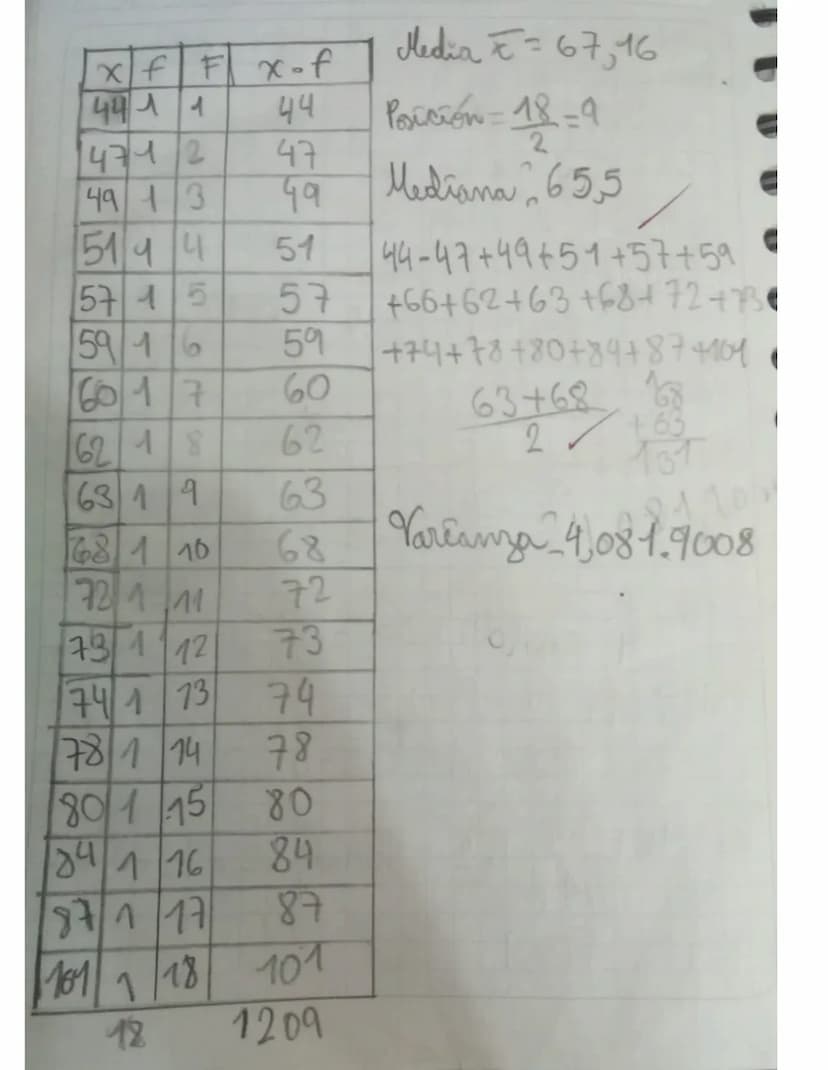 x f F x•f
44 1 1 44
47 1 2 47
49 1 3 49
51 1 4 51
57 1 5 57
59 1 6 59
60 1 7 60
62 1 8 62
63 1 9 63
68 1 10 68
72 1 11 72
73 1 12 73
74 1 13 74
78 1 14 78
80 1 15 80
84 1 16 84
87 1 17 87
101 1 18 101
18 1209
Media x̄ = 67,16
Posición = 18/2 = 9
Mediana: 65,5
44-47+49+51+57+59
+66+62+63+68+72+73
+74+78+80+84+87+101
63+68
2
1
68
+63
131
Varianza = 4,081.9008